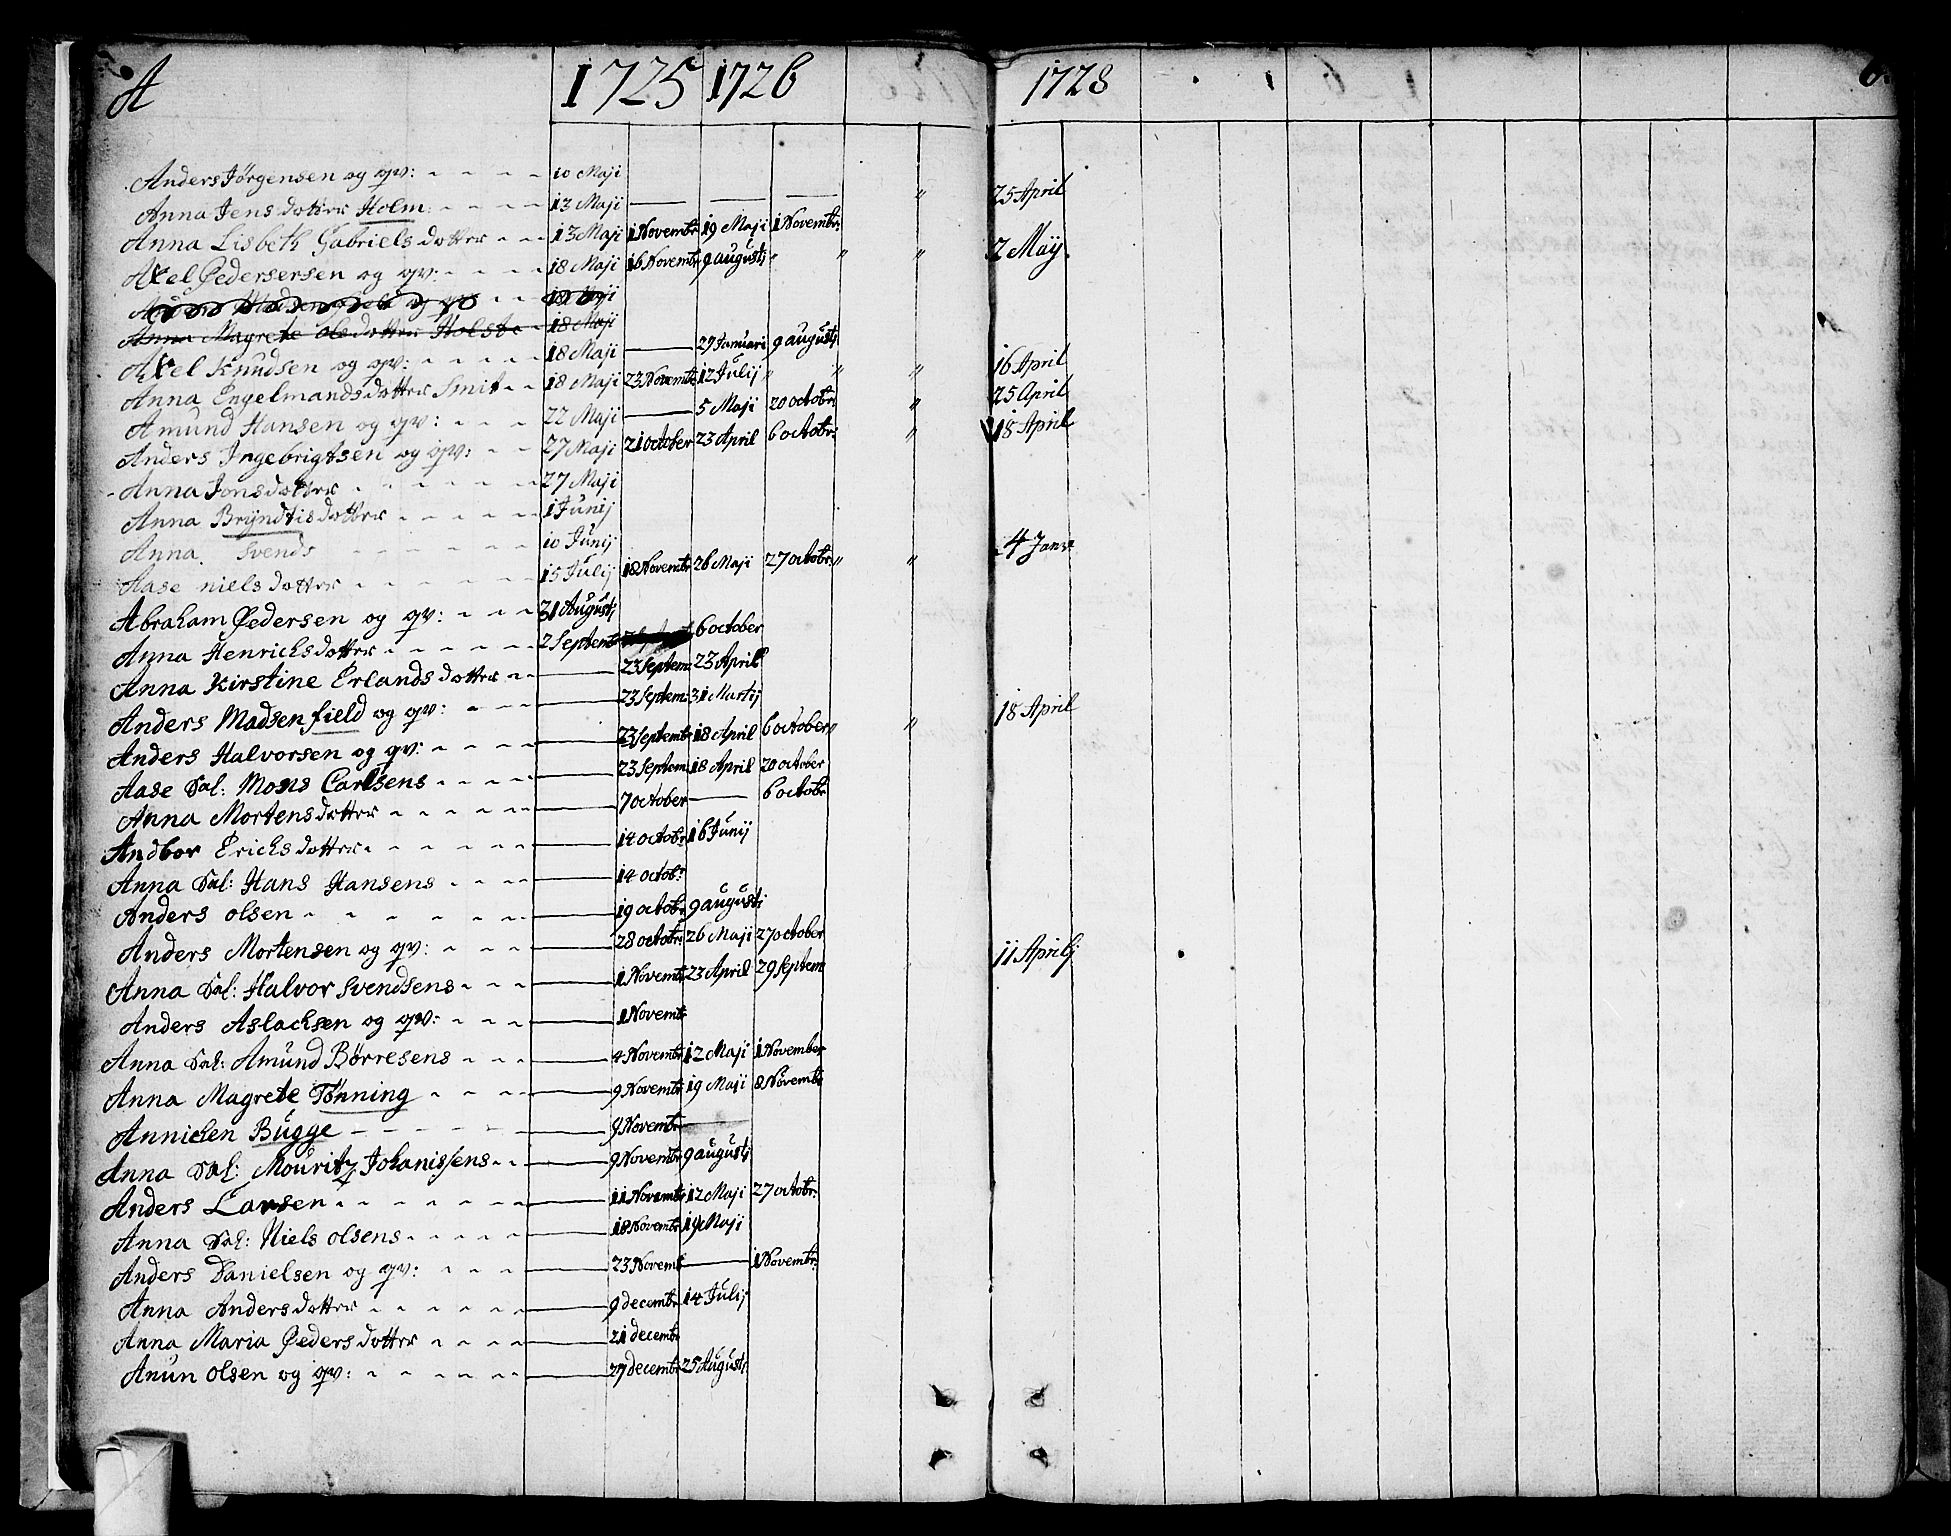 A 1725 1726 1728 6.
Anders Jörgensen og qv: 10 Maji
Anna Jens dotter Holm. 13 Maji — — — " 25 April
Anna Lisbeth Gabriels dotter 13 Maji 1 Novembr 19 Maji 1 Novembr:
Axel Pedersersen og qv: 18 Maji 16 Novembr 9 augusti " " " 2 Maÿ.
18 Maji
Anna Magrete olsdotter Holste 18 Maji
Axel Knudsen og qv: 18 Maji — 29 Januari 9 augusti
Anna Engelmandsdotter Smit 18 Maji 23 Novembr 12 Julij " " " 16 April
Amund Hansen og qv: 22 Maji — 5 Maji 20 octobr " 25 April
Anders Ingebrigtsen og qv: 27 Maji 21 october 23 April 6 octobr: " 18 April
Anna Jonsdotter 27 Maji
Anna Brÿndtisdotter 1 Junij
Anna Svends 10 Junij
Aase nielsdotter 15 Julij 18 Novembr 26 Maji 27 octobr: " " 4 Janv.
Abraham Pedersen og qv: 31 Augusti
Anna Henrichsdotter 2 Septemb 6 october
Anna Kirstine Erlandsdotter — 23 Septem: 23 April
Anders Madsen field og qv: — 23 Septem: 31 Martij
Anders Halvorsen og qv: — 23 Septembr 18 April 6 october " " 18 April
Aase Sal: Mons Carlsens — 23 Septem: 18 April 20 october
Anna Mortensdotter — 7 october — 6 octobr
Andbor Erichsdotter — 14 octobr: 16 Junij
Anna Sal: Hans Hansens — 14 octob:
Anders olsen — 19 octobr 9 augusti
Anders Mortensen og qv: — 28 octobr: 26 Maji 27 october 11 Aprilj
Anna Sal: Halvor Svendsens — 1 Novembr 23 April 29 Septem
Anders Aslachsen og qv: — 1 Novembr
Anna Sal: Amund Börresens — 4 Novembr 12 Maji 1 November
Anna Magrete Tönning — 9 Novembr 19 Maji 8 Novembr
Annichen Bugge — 9 Novembr —
Anna Sal: Mouritz Johanissens — 9 Novembr 9 augusti
Anders Larsen — 11 Novembr 12 Maji 27 octobr:
Anna Sal: Niels olsens — 18 Novembr 19 Maji
Anders Danielsen og qv: — 23 Novemb — 1 Novembr:
Anna Andersdotter — 9 decembr 14 Julij
Anna Maria Pedersdotter — 21 decembr
Anun olsen og qv: — 27 decembr 25 Augusti